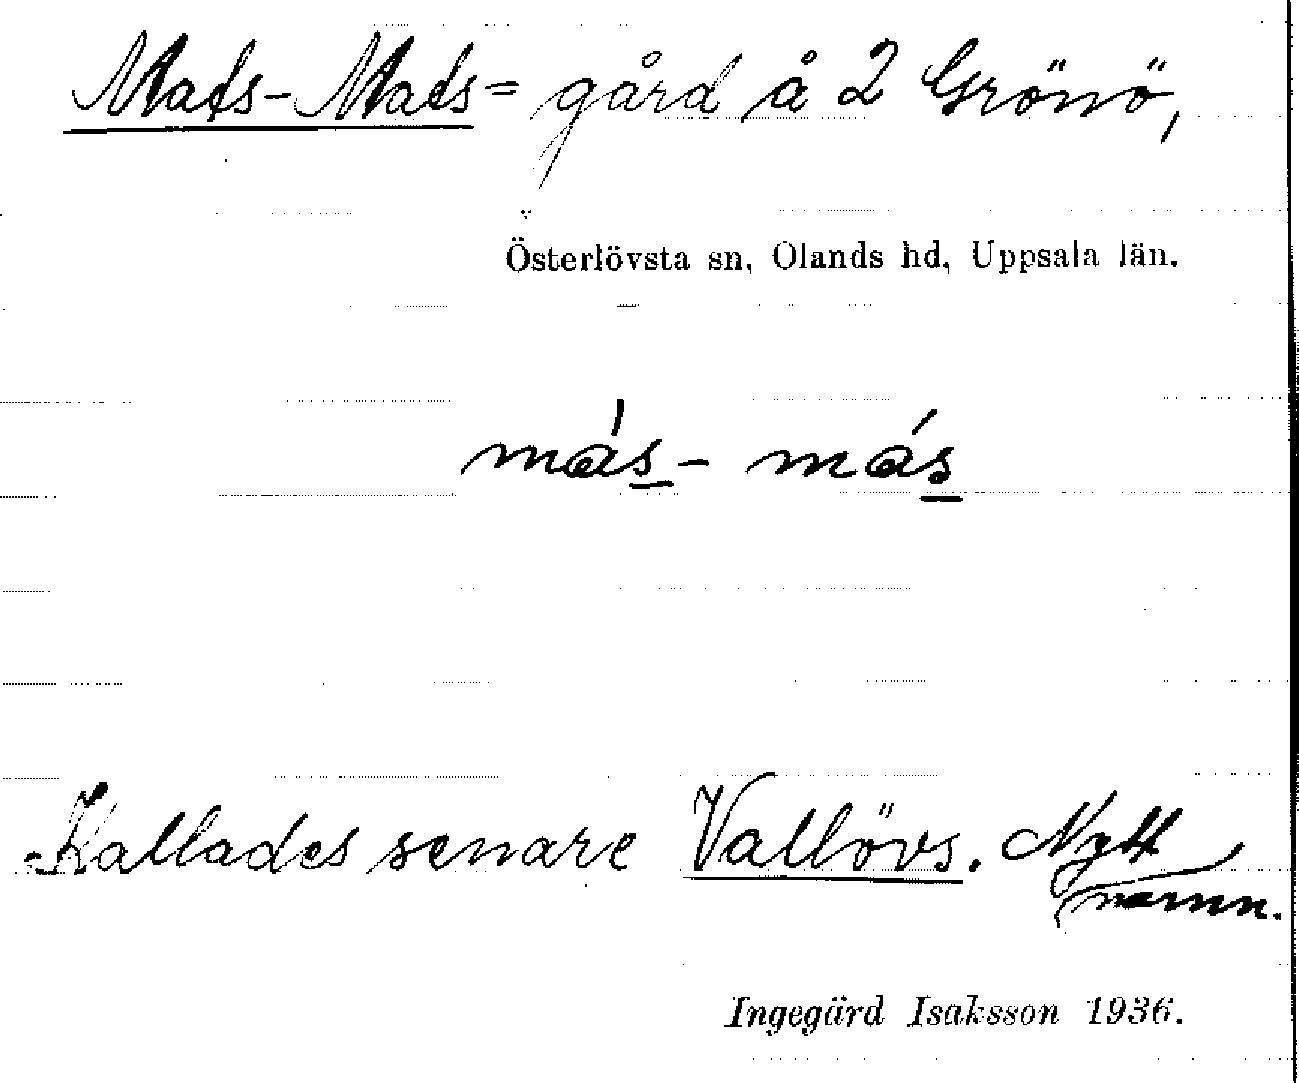 Mats-Mats= gård å 2 Grönö,
Österlövsta sn, Olands hd, Uppsala län.
más- más
Kallades senare Vallövs. Nytt
namn.
Ingegärd Isaksson 1936.